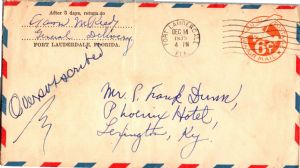 After 5 days, return to
General Delivery
FORT LAUDERDALE, FLORIDA.
FORT LAUDERDALE
DEC 14
4 PM
FLA.
6¢
Oversubscribed
Mr. P. Frank Dunn,
Phoenix Hotel,
Lexington, Ky.